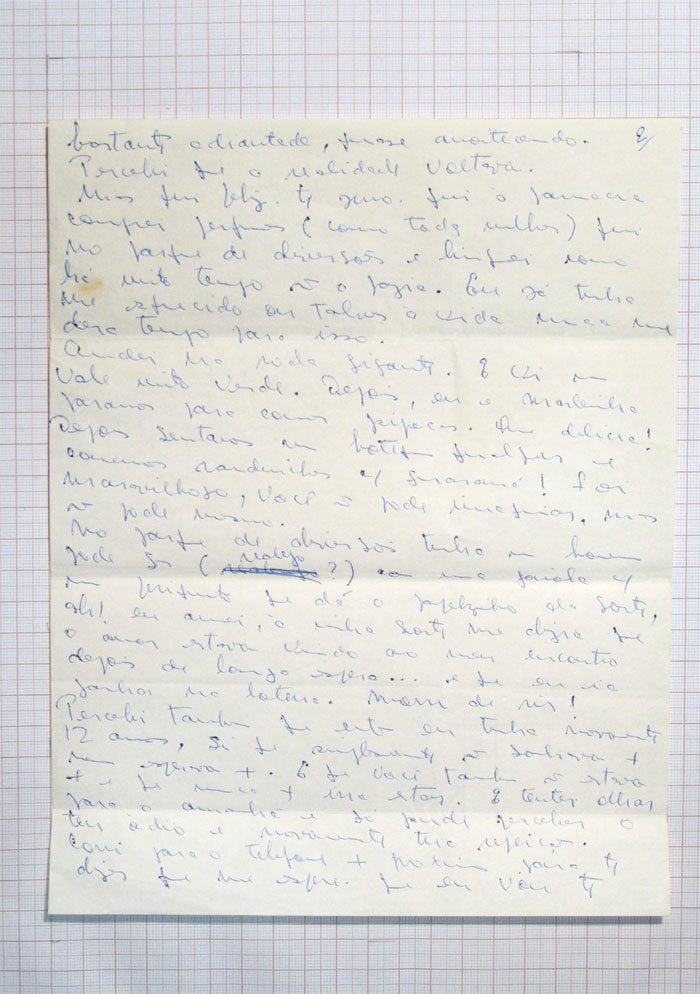 bastante adiantada, quase anoitecendo. 2/
Percebi que a realidade voltava.
Mas fui feliz. Fui à farmácia
comprei perfumes (como toda mulher) fui
no parque de diversões e brinquei como
há muito tempo ñ o fazia. Eu já tinha
me esquecido ou talvez a vida nunca me
dera tempo para isso.
Andei na roda gigante. E vi um
vale muito verde. Depois, eu e
paramos para comer pipocas. Que delícia!
Depois sentamos um botequim qualquer e
comemos sanduiches c/ guaraná! Foi
maravilhoso, você ñ pode imaginar, mas
ñ pode mesmo.
No parque de diversões tinha um homem
pode ser (realejo ?) com uma gaiola c/
um periquito que dá o papelzinho da sorte,
ah! eu amei, a minha sorte me dizia que
o amor estava vindo ao meu encontro
depois de longa espera... e que eu ia
ganhar na loteria. Morri de rir!
Percebi também que eu tinha novamente
12 anos, só que simplesmente ñ sonhava +
nem esperava +. E que você também ñ estava
+ e que nunca + iria estar. E tentei olhar
para o amanhã e só pude perceber o
teu ódio e novamente tua
Corri para o telefone + próximo para te
dizer que me espere. Que eu vou te